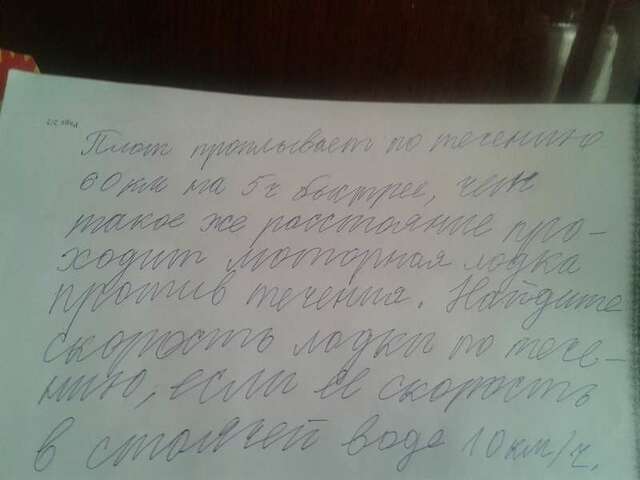 Плот проплывает по течению
60 км на 5 ч быстрее, чем
такое же расстояние про-
ходит моторная лодка
против течения. Найдите
скорость лодки по тече-
нию, если её скорость
в стоячей воде 10 км/ч.